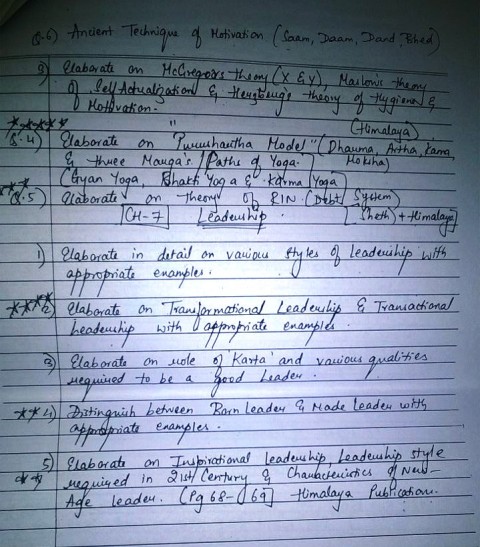 Q.6) Ancient Technique of Motivation (Saam, Daam, Dand, Bhed)
3) Elaborate on McGregor's theory (X & Y), Maslow's theory
of Self Actualization & Herzberg's theory of Hygiene &
Motivation. (Himalaya)
**** Q.4) Elaborate on "Purushartha Model" (Dharma, Artha, Kama,
& three Marga's / Paths of Yoga. Moksha)
(Gyan Yoga, Bhakti Yoga & Karma Yoga)
*** Q.5) Elaborate on theory of RIN (Debt System)
CH-7 Leadership. [Sheth + Himalaya]
1) Elaborate in detail on various styles of Leadership with
appropriate examples.
**** 2) Elaborate on Transformational Leadership & Transactional
Leadership with appropriate examples.
3) Elaborate on role of 'Karta' and various qualities
required to be a good Leader.
** 4) Distinguish between Born Leader & Made Leader with
appropriate examples.
5) Elaborate on Inspirational Leadership, Leadership style
** required in 21st Century & Characteristics of New-
Age leader. (Pg 68-69) Himalaya Publication.